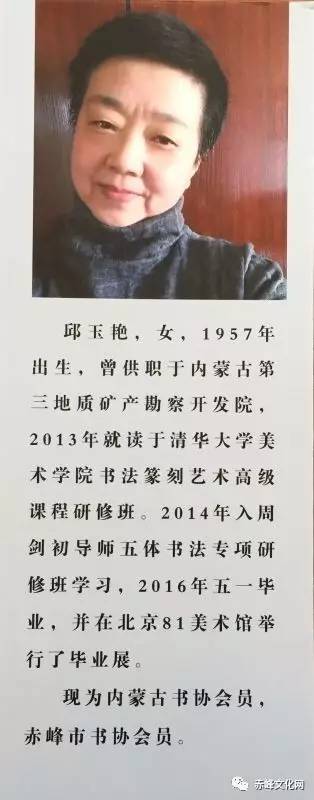 邱玉艳，女，1957年
出生，曾供职于内蒙古第
三地质矿产勘察开发院，
2013年就读于清华大学美
术学院书法篆刻艺术高级
课程研修班。2014年入周
剑初导师五体书法专项研
修班学习，2016年五一毕
业，并在北京81美术馆举
行了毕业展。
现为内蒙古书协会员，
赤峰市书协会员。
赤峰文化网